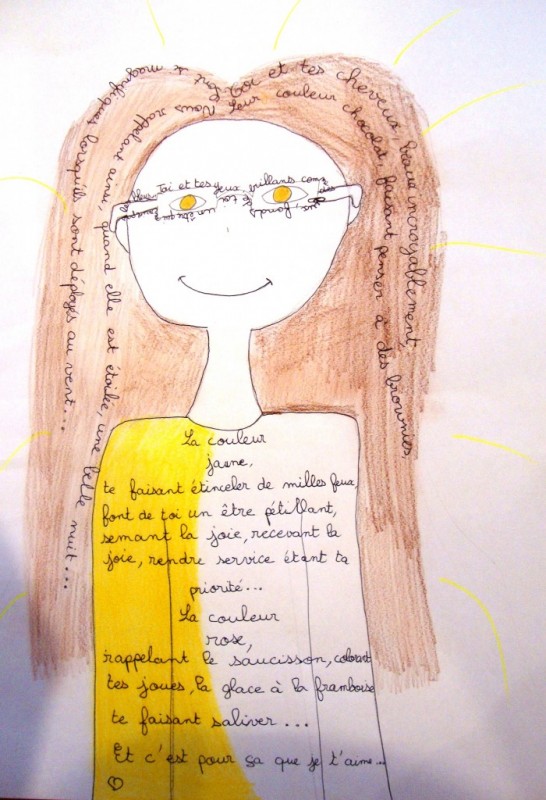 Toi et tes cheveux, beaux incroyablement,
magnifiques lorsqu'ils sont déployés au vent...
Leur couleur chocolat, faisant penser à des brownies,
Nous rappelant ainsi, quand elle est étoilée, une belle nuit...
Toi et tes yeux, brillants
La couleur
jaune,
te faisant étinceler de milles feux,
font de toi un être pétillant,
semant la joie, recevant la
joie, rendre service étant ta
priorité...
La couleur
rose,
rappelant le saucisson, colorant
tes joues, la glace à la framboise
te faisant saliver...
Et c'est pour ça que je t'aime...